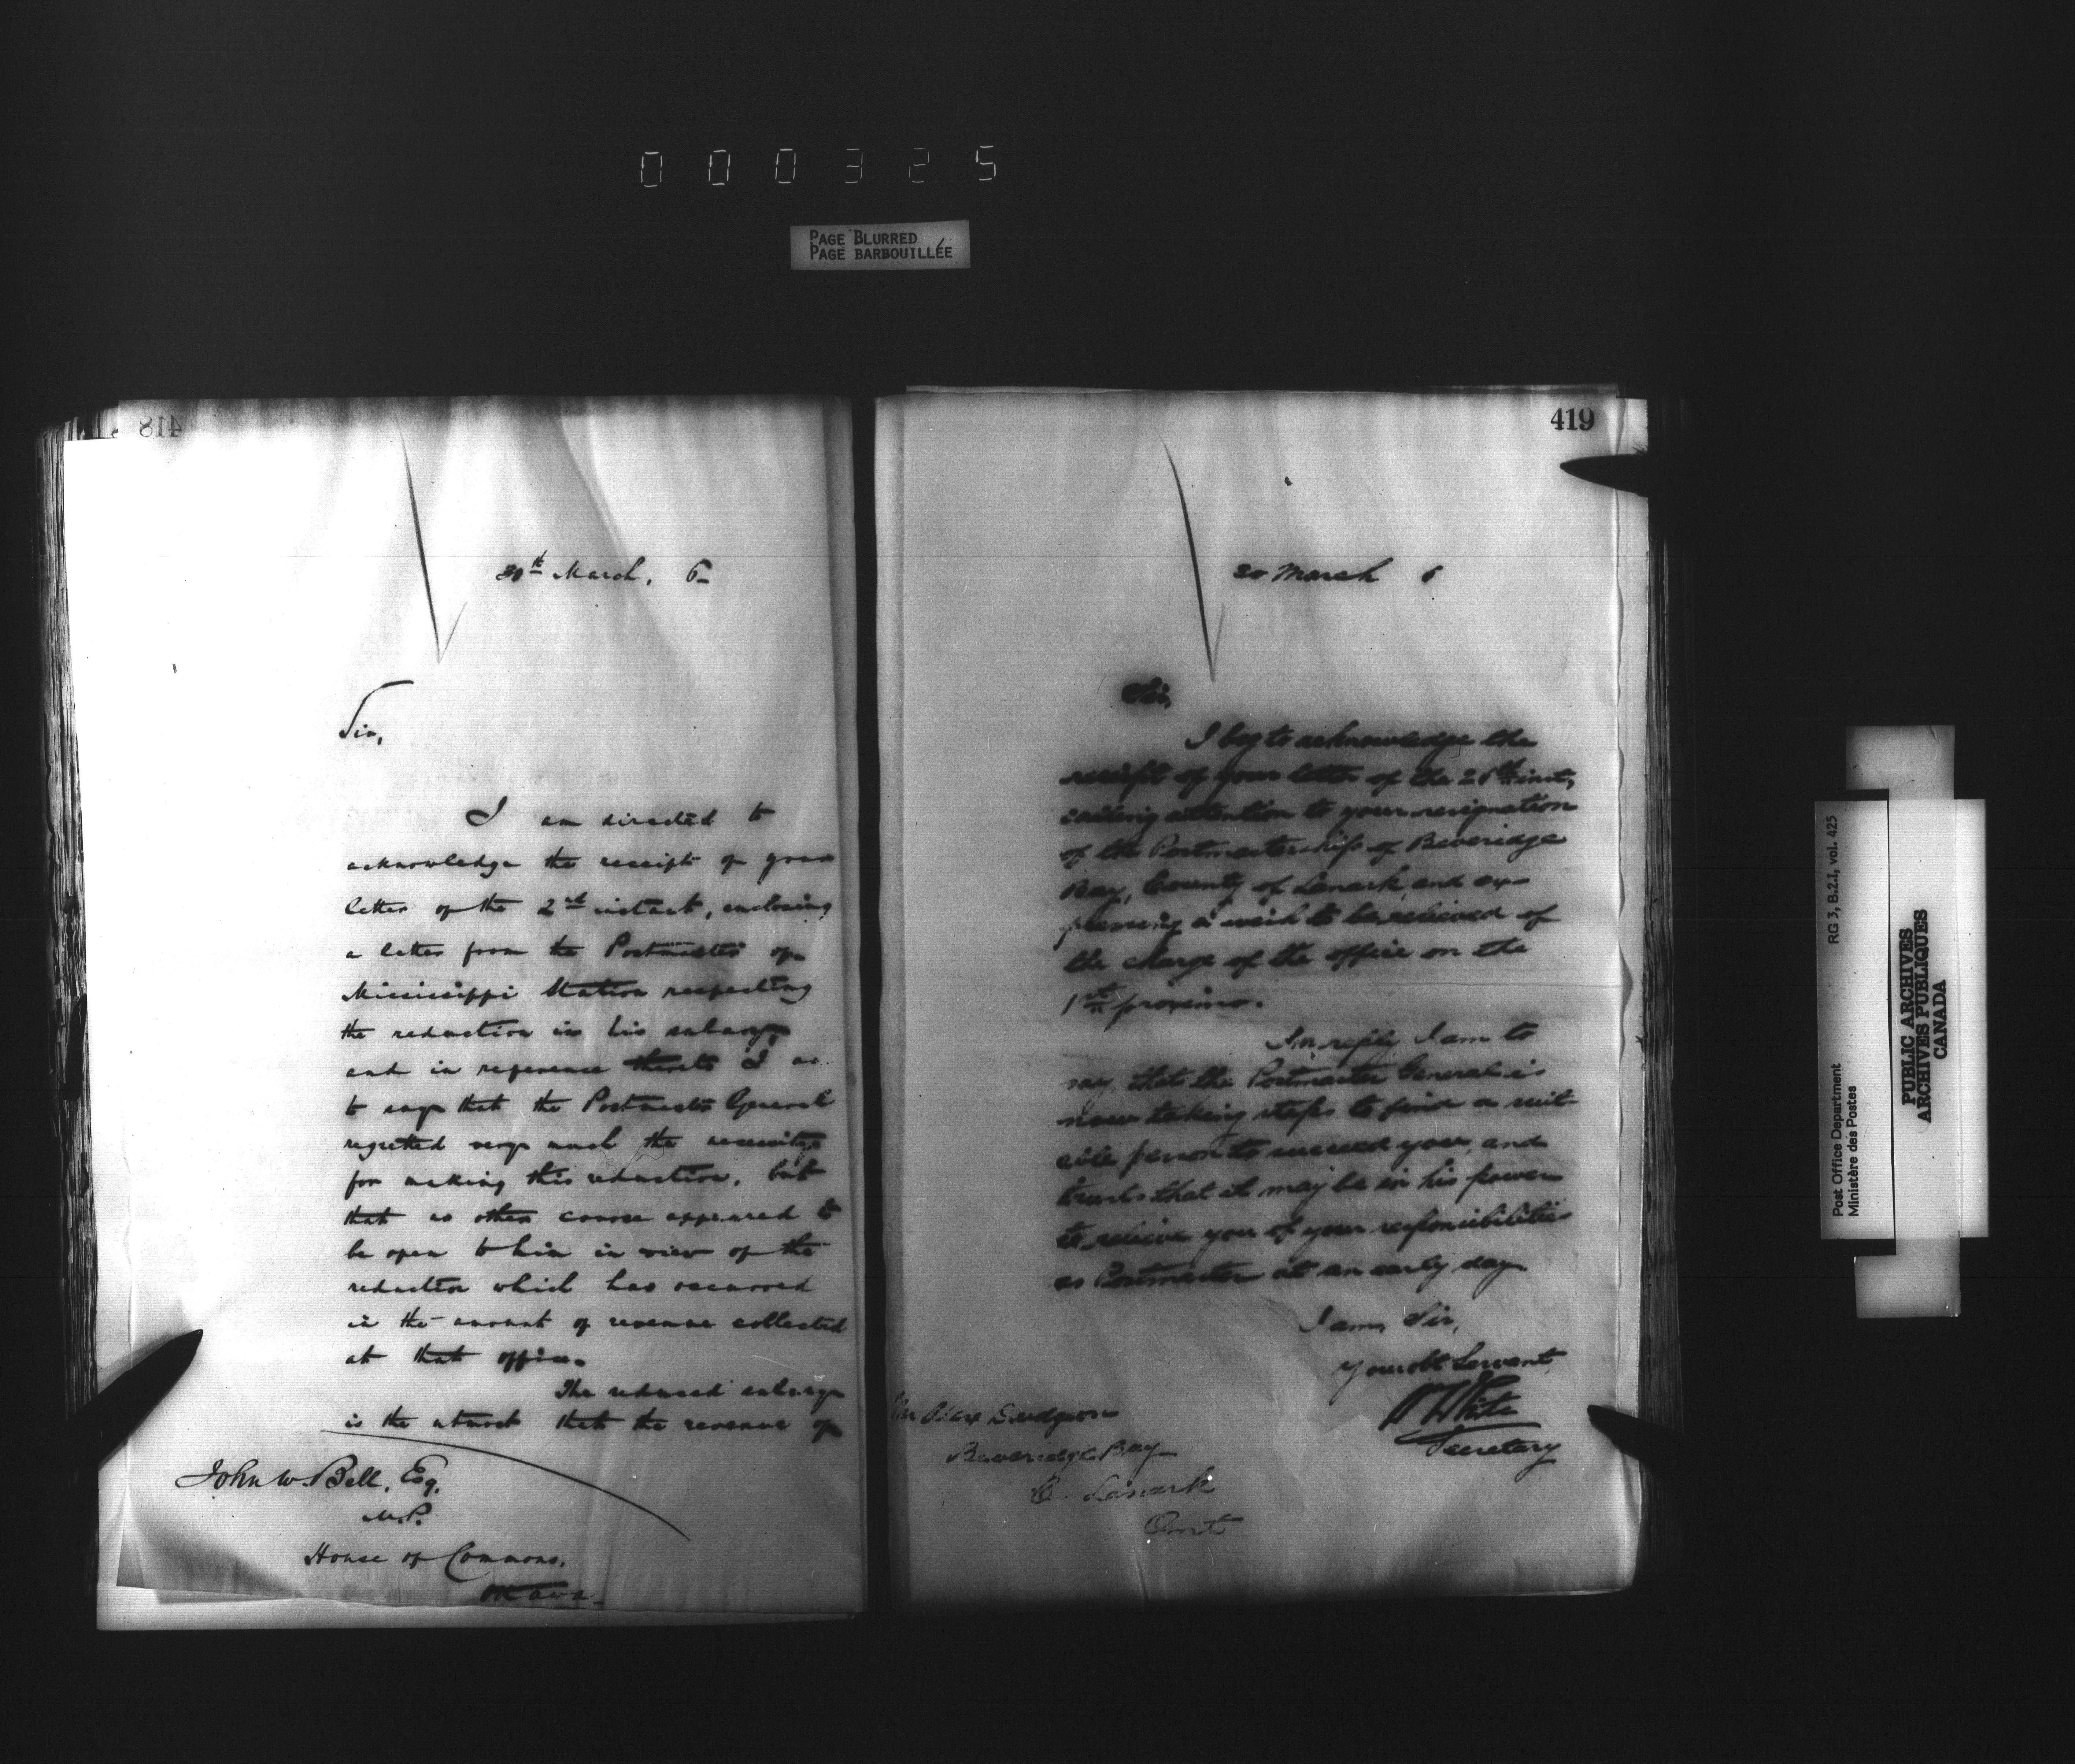 000325
PAGE BLURRED
PAGE BARBOUILLÉE
418
30th March, 6
Sir,
I am directed to
acknowledge the receipt of your
letter of the 2nd instant, enclosing
a letter from the Postmaster of
Mississippi Station respecting
the reduction in his salary,
and in reference thereto I am
to say that the Postmaster General
regretted very much the necessity
for making this reduction, but
that no other course appeared to
be open to him in view of the
reduction which has occurred
in the amount of revenue collected
at that office.
The reduced salary
is the utmost that the revenue of
John W. Bell, Esq.
M.P.
House of Commons,
Ottawa
419
30 March 6
Sir,
I beg to acknowledge the
receipt of your letter of the inst,
calling attention to your resignation
of the Postmastership of Beveridge
Bay, County of Lanark, and ex-
pressing a wish to be relieved of
the charge of the office on the
1st proximo.
In reply I am to
say, that the Postmaster General is
now taking steps to find a suit-
able person to succeed you, and
trusts that it may be in his power
to relieve you of your responsibilities
as Postmaster at an early day
I am, Sir,
Your obt Servant
White
Secretary
Mr Alex Dudgeon
Beveridge Bay
C. Lanark
Ont
RG 3, B.2.I, vol. 425
Post Office Department
Ministère des Postes
PUBLIC ARCHIVES
ARCHIVES PUBLIQUES
CANADA